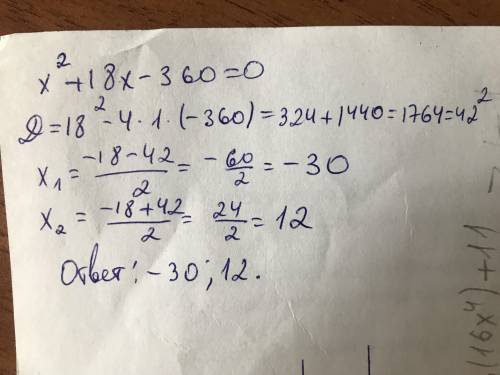 x² + 18x - 360 = 0
D = 18² - 4 · 1 · (-360) = 324 + 1440 = 1764 = 42²
x₁ = (-18 - 42)/2 = -60/2 = -30
x₂ = (-18 + 42)/2 = 24/2 = 12
Ответ: -30; 12.
(16x⁴) + 11